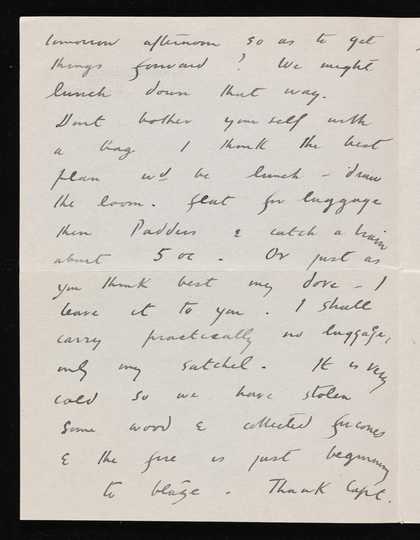 tomorrow afternoon so as to get
things forward? We might
lunch down that way.
Dont bother yourself with
a bag I think the best
plan wd be lunch – draw
the loom. flat for luggage
then Paddinn & catch a train
about 5 oc. Or just as
you think best my dove – I
leave it to you. I shall
carry practically no luggage,
only my satchel. It is very
cold so we have stolen
some wood & collected fircones
& the fire is just beginning
to blaze. Thank Capt.